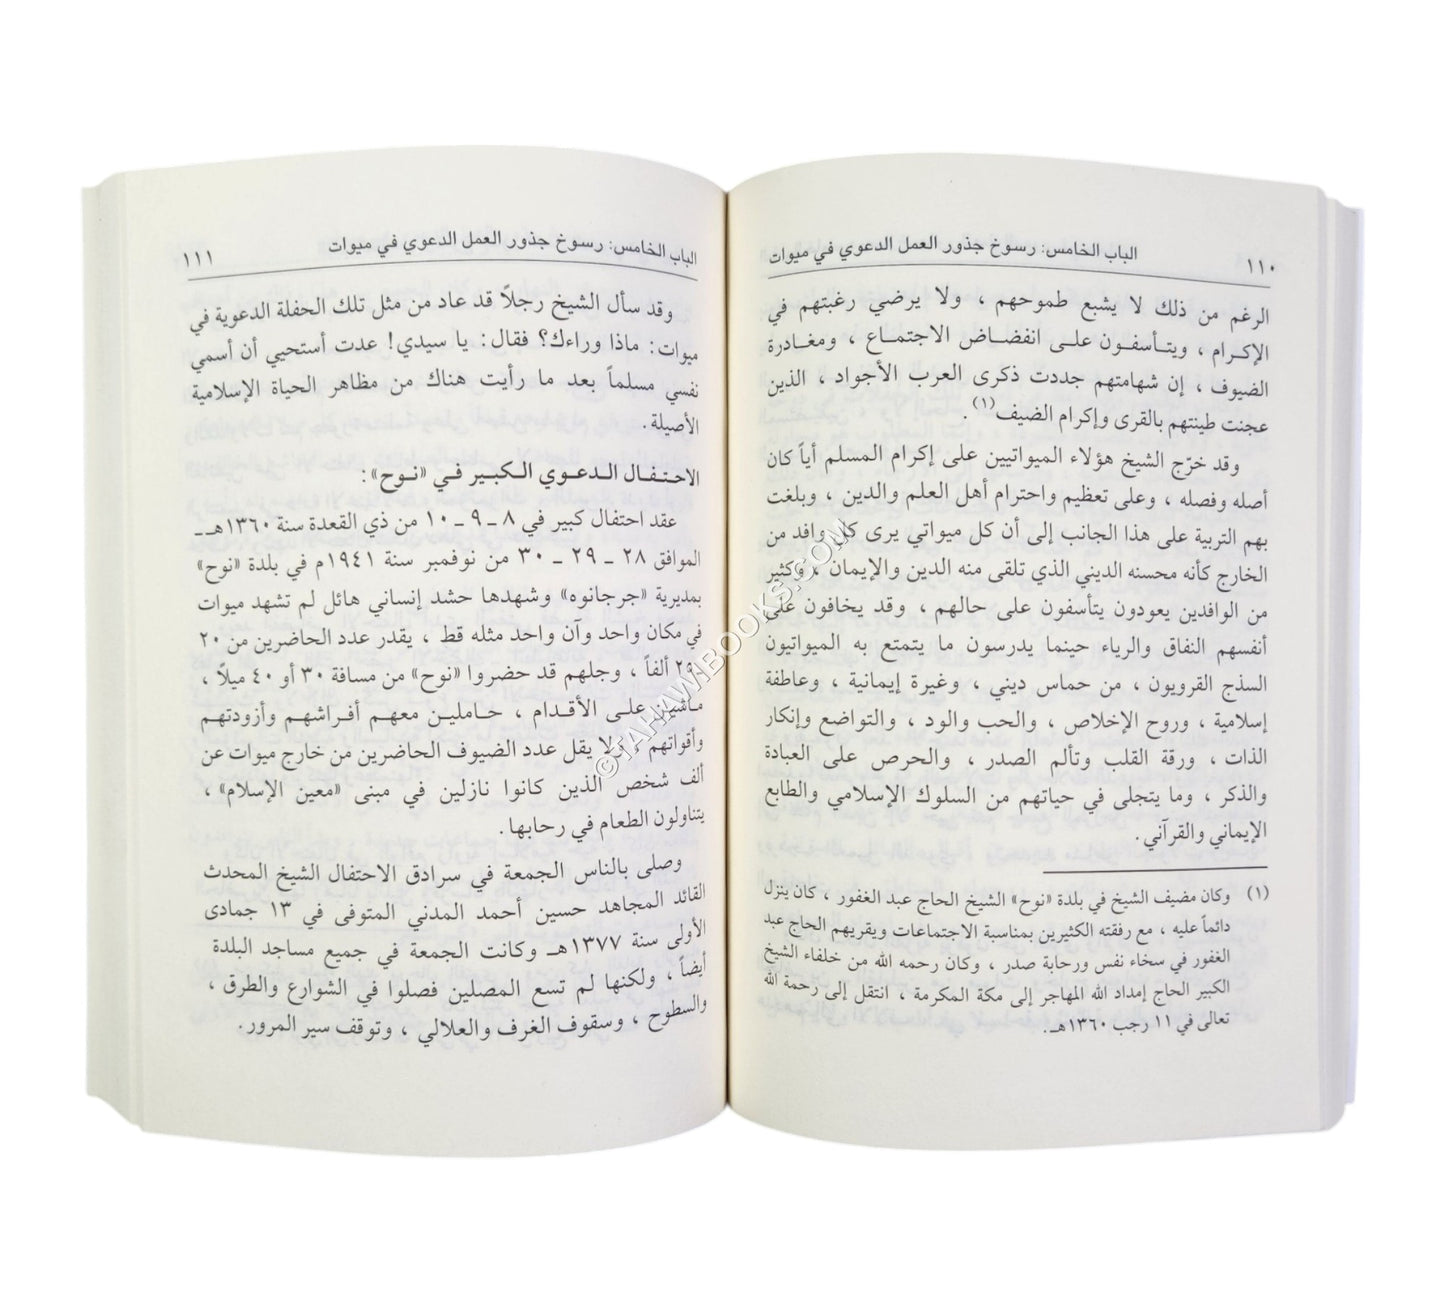 ١١٠
الباب الخامس: رسوخ جذور العمل الدعوي في ميوات
الرغم من ذلك لا يشبع طموحهم ، ولا يرضي رغبتهم في
الإكرام ، ويتأسفون على انفضاض الاجتماع ، ومغادرة
الضيوف ، إن شهامتهم جددت ذكرى العرب الأجواد ، الذين
عجنت طينتهم بالقرى وإكرام الضيف(١) .
وقد خرّج الشيخ هؤلاء الميواتيين على إكرام المسلم أياً كان
أصله وفصله ، وعلى تعظيم واحترام أهل العلم والدين ، وبلغت
بهم التربية على هذا الجانب إلى أن كل ميواتي يرى كل وافد من
الخارج كأنه محسنه الديني الذي تلقى منه الدين والإيمان ، وكثير
من الوافدين يعودون يتأسفون على حالهم ، وقد يخافون على
أنفسهم النفاق والرياء حينما يدرسون ما يتمتع به الميواتيون
السذج القرويون ، من حماس ديني ، وغيرة إيمانية ، وعاطفة
إسلامية ، وروح الإخلاص ، والحب والود ، والتواضع وإنكار
الذات ، ورقة القلب وتألم الصدر ، والحرص على العبادة
والذكر ، وما يتجلى في حياتهم من السلوك الإسلامي والطابع
الإيماني والقرآني .
(١) وكان مضيف الشيخ في بلدة «نوح» الشيخ الحاج عبد الغفور ، كان ينزل
دائماً عليه ، مع رفقته الكثيرين بمناسبة الاجتماعات ويقريهم الحاج عبد
الغفور في سخاء نفس ورحابة صدر ، وكان رحمه الله من خلفاء الشيخ
الكبير الحاج إمداد الله المهاجر إلى مكة المكرمة ، انتقل إلى رحمة الله
تعالى في ١١ رجب ١٣٦٠هـ .
الباب الخامس: رسوخ جذور العمل الدعوي في ميوات
١١١
وقد سأل الشيخ رجلاً قد عاد من مثل تلك الحفلة الدعوية في
ميوات: ماذا وراءك؟ فقال: يا سيدي! عدت أستحيي أن أسمي
نفسي مسلماً بعد ما رأيت هناك من مظاهر الحياة الإسلامية
الأصيلة .
الاحتفال الدعوي الكبير في «نوح» :
عقد احتفال كبير في ٨ ـ ٩ ـ ١٠ من ذي القعدة سنة ١٣٦٠هـ ـ
الموافق ٢٨ ـ ٢٩ ـ ٣٠ من نوفمبر سنة ١٩٤١م في بلدة «نوح»
بمديرية «جرجانوه» وشهدها حشد إنساني هائل لم تشهد ميوات
في مكان واحد وآن واحد مثله قط ، يقدر عدد الحاضرين من ٢٠
ألفاً ، وجلهم قد حضروا «نوح» من مسافة ٣٠ أو ٤٠ ميلاً ،
ماشين على الأقدام ، حاملين معهم أفراشهم وأزودتهم
وأقواتهم ، ولا يقل عدد الضيوف الحاضرين من خارج ميوات عن
ألف شخص الذين كانوا نازلين في مبنى «معين الإسلام» ،
يتناولون الطعام في رحابها .
وصلى بالناس الجمعة في سرادق الاحتفال الشيخ المحدث
القائد المجاهد حسين أحمد المدني المتوفى في ١٣ جمادى
الأولى سنة ١٣٧٧هـ وكانت الجمعة في جميع مساجد البلدة
أيضاً ، ولكنها لم تسع المصلين فصلوا في الشوارع والطرق ،
والسطوح ، وسقوف الغرف والعلالي ، وتوقف سير المرور .
©TAHAWIBOOKS.COM